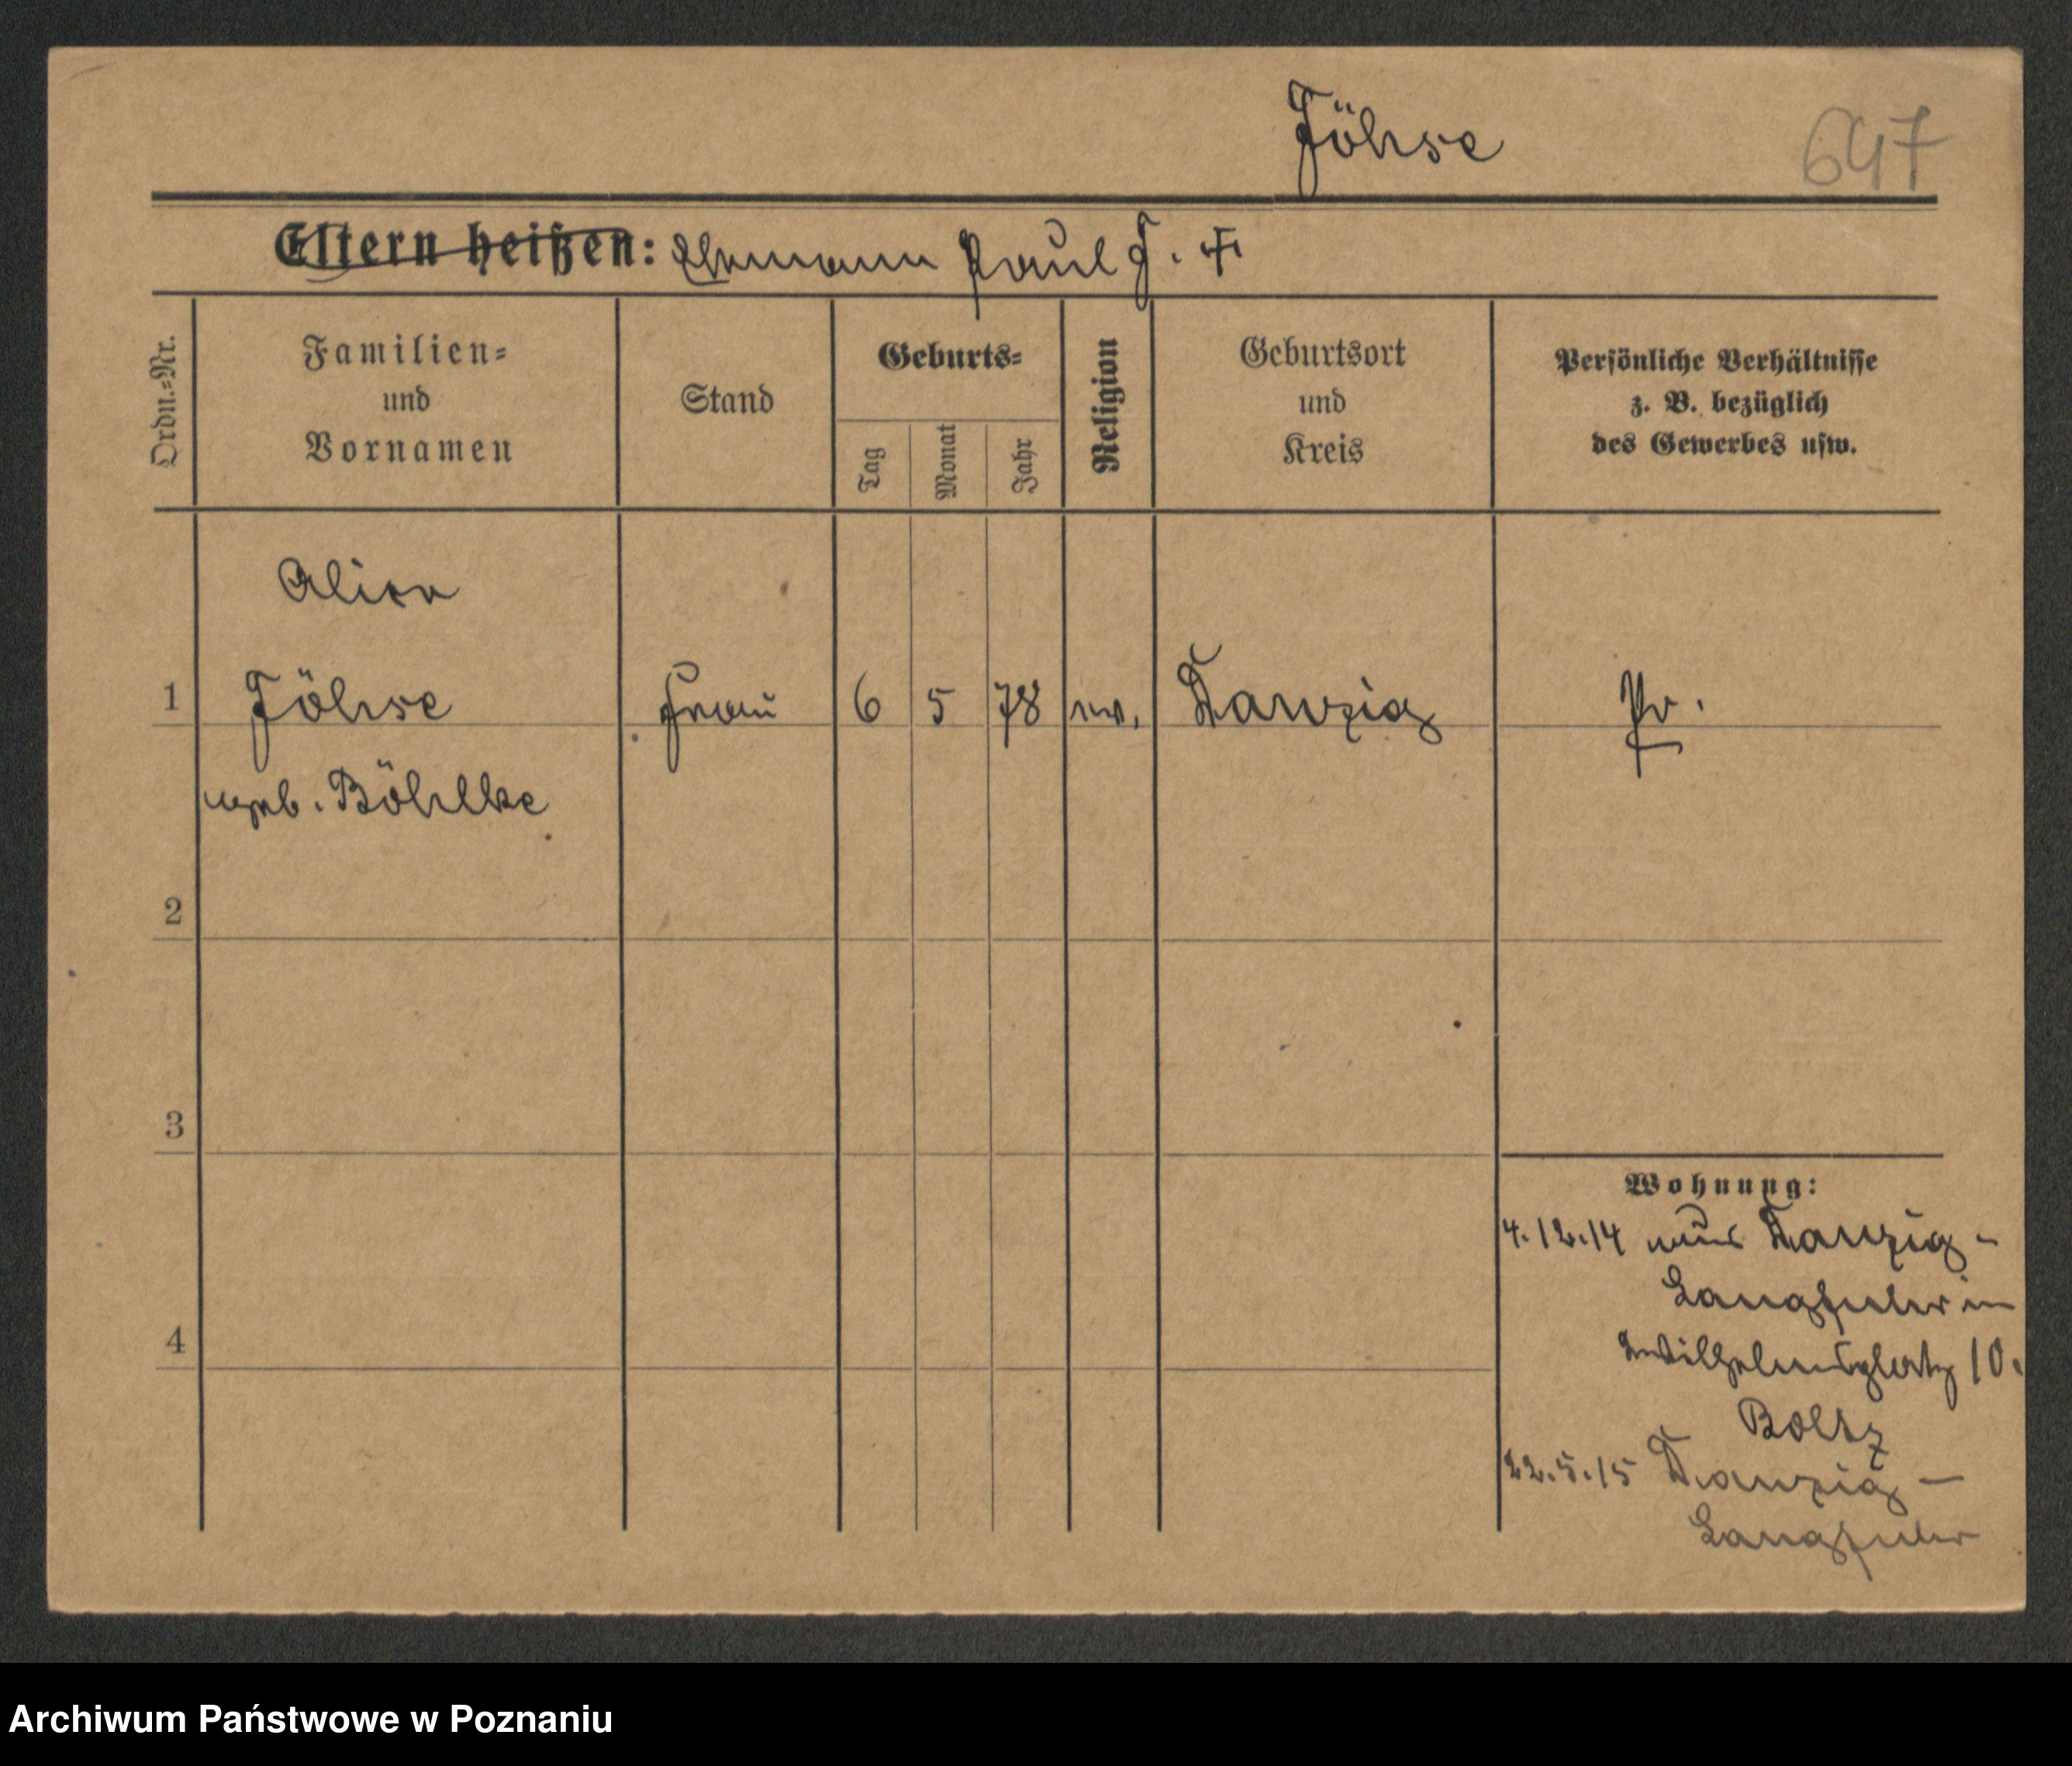 Föhse
647
Eltern heißen: Ehemann Paul F. †
Ordn.=Nr.
Familien=
und
Vornamen
Stand
Geburts=
Tag
Monat
Jahr
Religion
Geburtsort
und
Kreis
Persönliche Verhältnisse
z. B. bezüglich
des Gewerbes usw.
Alice
1 Föhse Frau 6 5 78 ev. Danzig Pr.
geb. Böhlke
2
3
4
Wohnung:
4.12.14 aus Danzig-
Langfuhr in
Wilhelmsplatz 10.
Boltz
22.5.15 Danzig —
Langfuhr
Archiwum Państwowe w Poznaniu